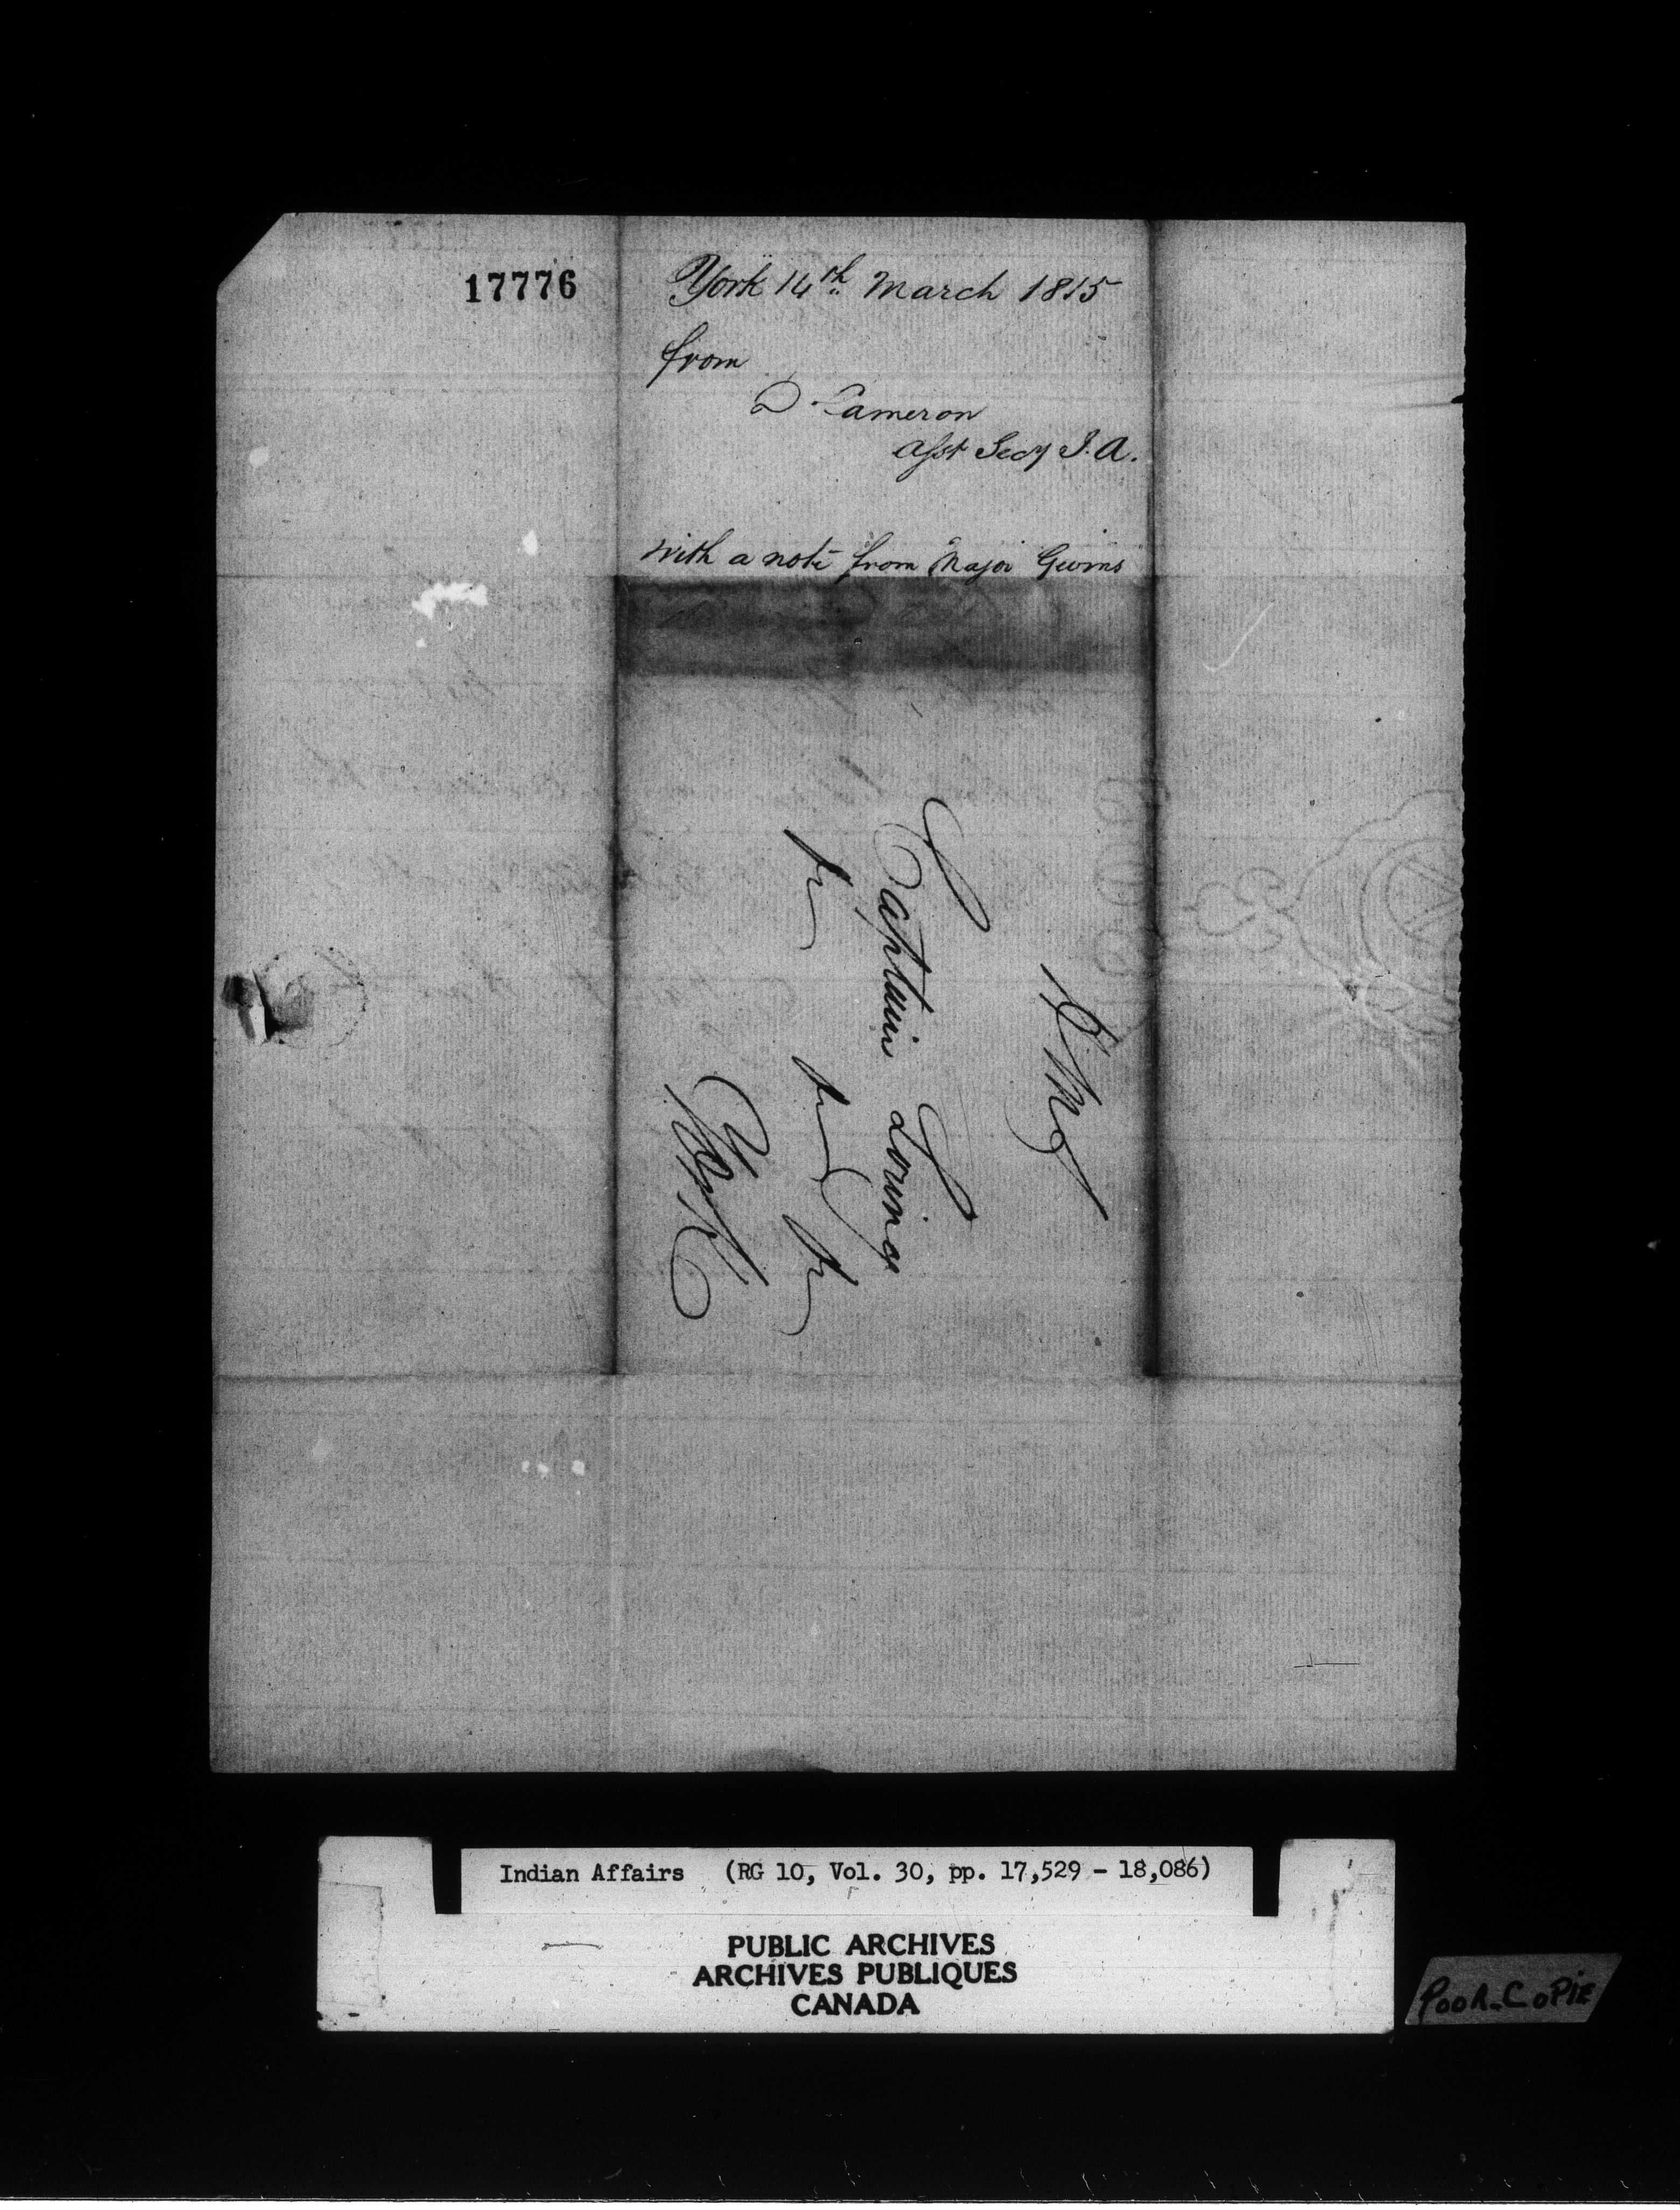 17776
York 14th March 1815
from
D. Cameron
Asst Secy I. A.
with a note from Major Givins
Captain Loring
&c &c &c
York
Indian Affairs (RG 10, Vol. 30, pp. 17,529 - 18,086)
PUBLIC ARCHIVES
ARCHIVES PUBLIQUES
CANADA
POOR COPIE